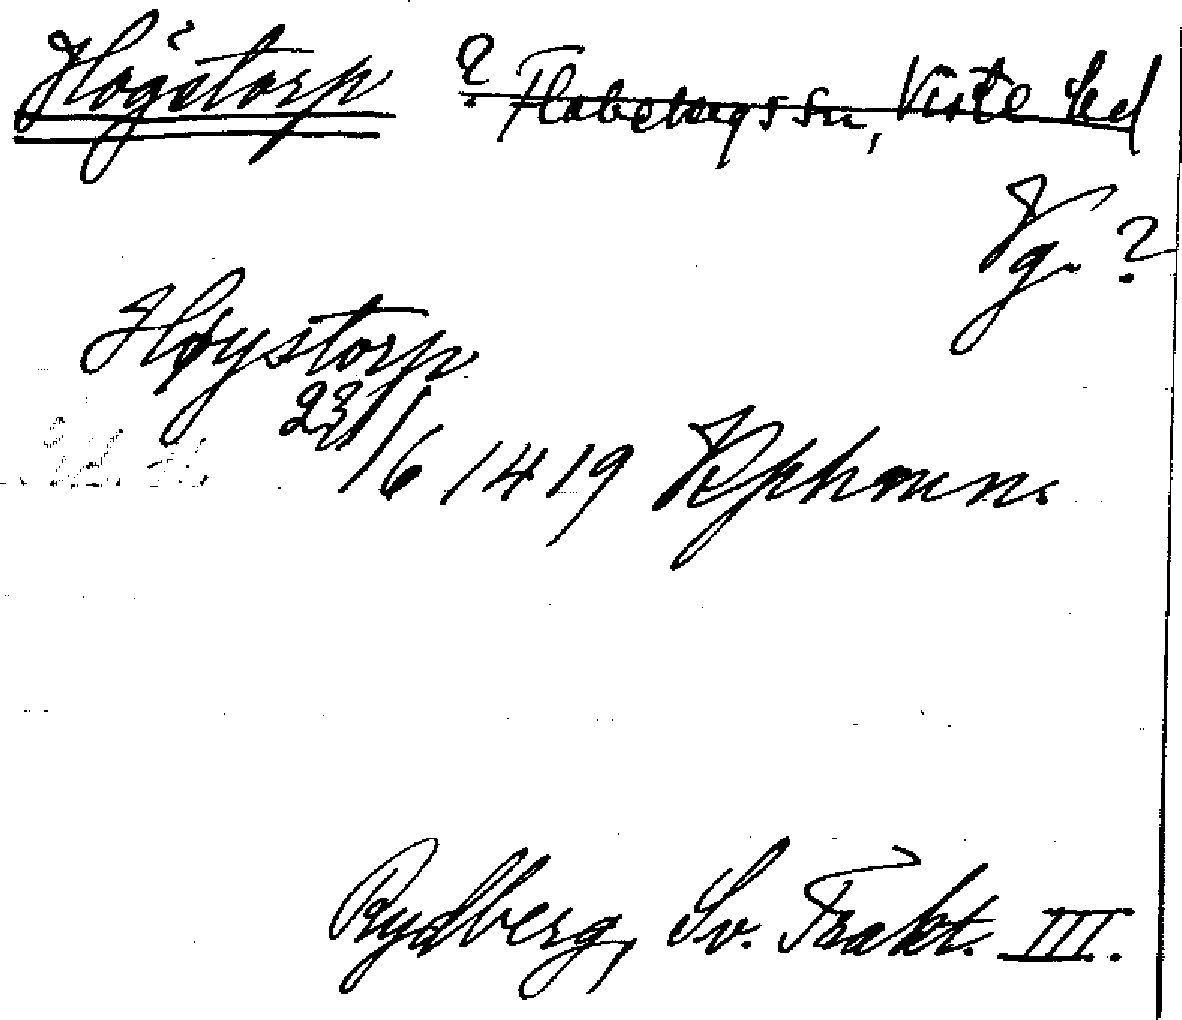 Högstorp ? Flobetorgs sn, Viste hd
Vg. ?
Høystorp
23/6 1419 Kphamn.
Rydberg, Sv. Trakt. III.